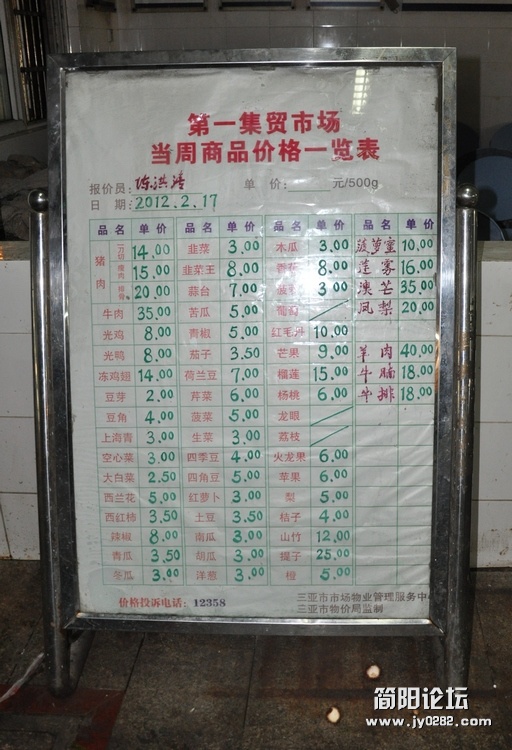 第一集贸市场
当周商品价格一览表
报价员: 单 价: 元/500g
日 期: 2012.2.17
品 名 单 价 品 名 单 价 品 名 单 价 品 名 单 价
猪肉 14.00 韭菜 3.00 木瓜 3.00 菠萝蜜 10.00
瘦肉 15.00 韭菜王 8.00 香花 8.00 莲雾 16.00
排骨 20.00 蒜台 7.00 3.00 澳芒 35.00
牛肉 35.00 苦瓜 5.00 葡萄 凤梨 20.00
光鸡 8.00 青椒 5.00 红毛丹 10.00
光鸭 8.00 茄子 3.50 芒果 9.00 羊肉 40.00
冻鸡翅 14.00 荷兰豆 7.00 榴莲 15.00 牛腩 18.00
豆芽 2.00 芹菜 6.00 杨桃 6.00 牛排 18.00
豆角 4.00 菠菜 5.00 龙眼
上海青 3.00 生菜 3.00 荔枝
空心菜 3.00 四季豆 4.00 火龙果 6.00
大白菜 2.50 四角豆 5.00 苹果 6.00
西兰花 5.00 红萝卜 3.00 梨 5.00
西红柿 3.50 土豆 3.50 桔子 4.00
辣椒 8.00 南瓜 3.00 山竹 12.00
青瓜 3.50 胡瓜 3.00 提子 25.00
冬瓜 3.00 洋葱 3.00 橙 5.00
价格投诉电话: 12358
三亚市市场物业管理服务中
三亚市物价局监制
简阳论坛
www.jy0282.com